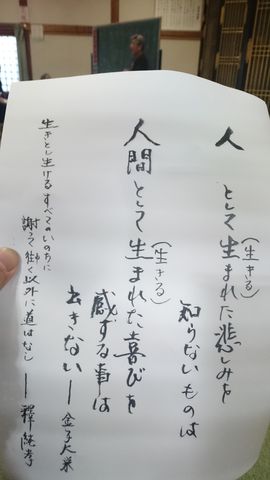 人として生まれた悲しみを
(生きる)
知らないものは
人間として生まれた喜びを
(生きる)
感ずる事は
出きない── 金子大栄
生きとし生けるすべてのいのちに
謝って働く以外に道はなし ── 釋純孝